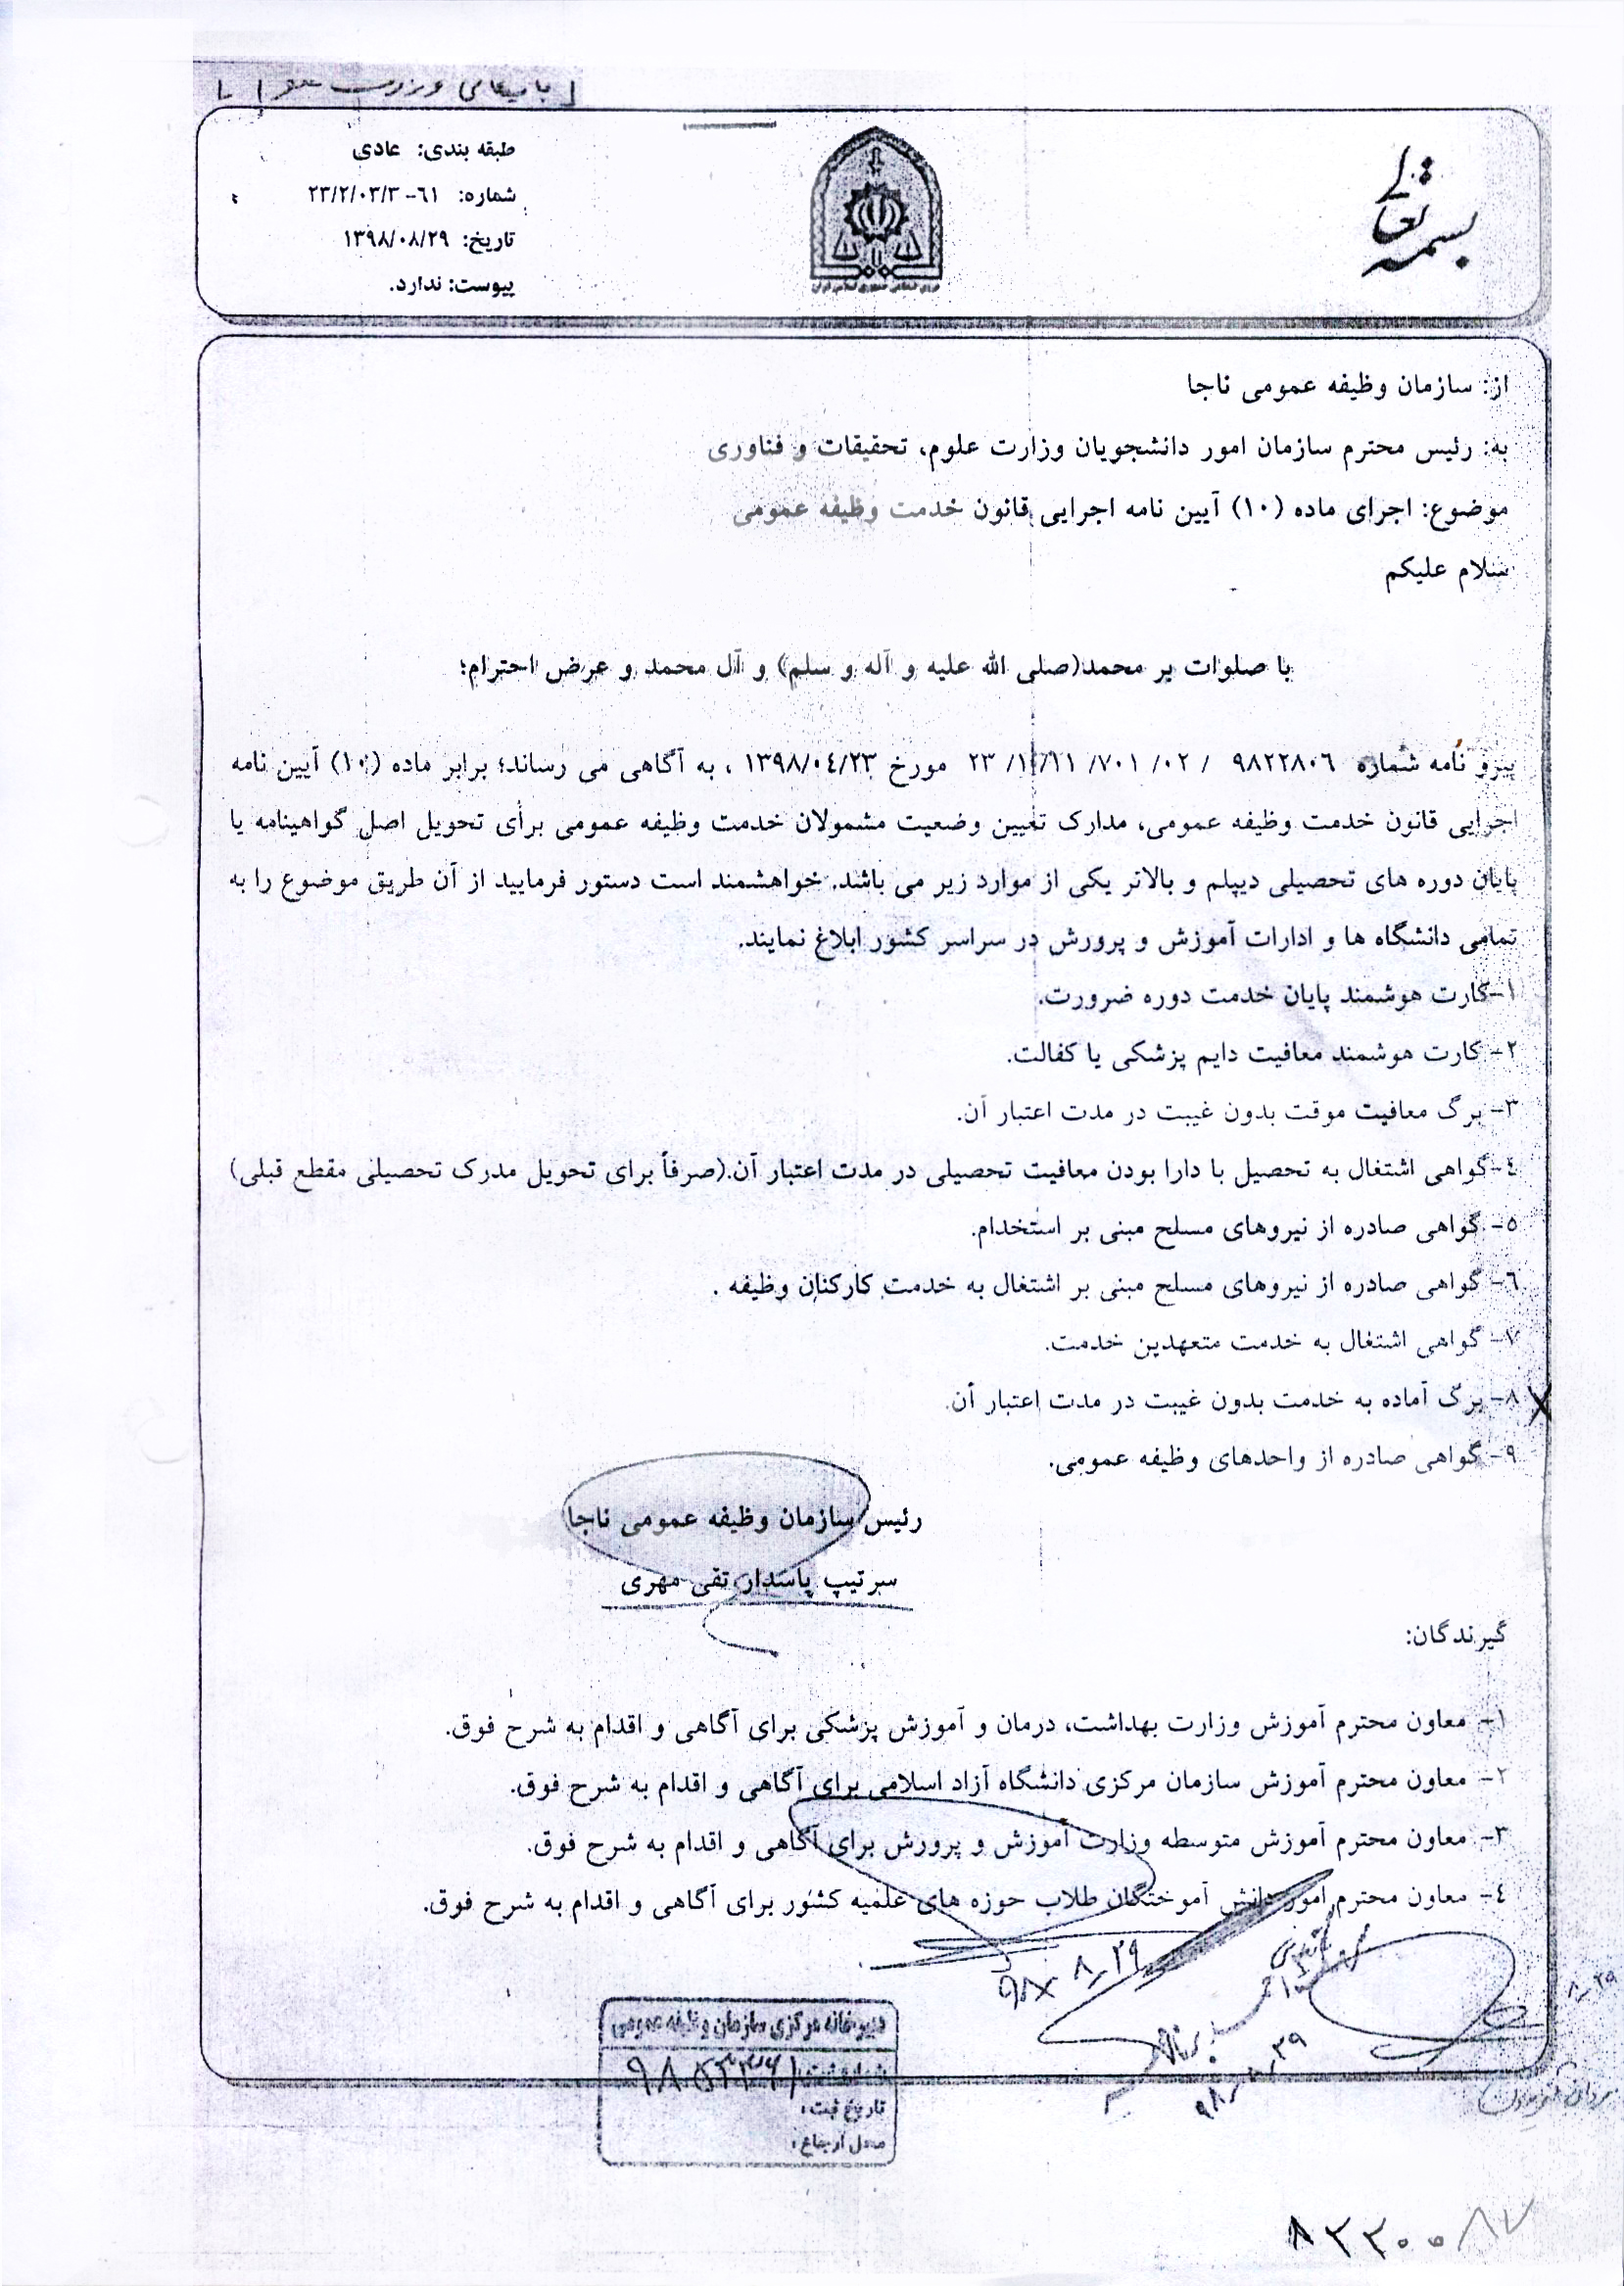 بسمه تعالی
طبقه بندی: عادی
شماره: ٦١- ٢٣/٢/٠٣/٣
تاریخ: ١٣٩٨/٠٨/٢٩
پیوست: ندارد.
از: سازمان وظیفه عمومی ناجا
به: رئیس محترم سازمان امور دانشجویان وزارت علوم، تحقیقات و فناوری
موضوع: اجرای ماده (١٠) آیین نامه اجرایی قانون خدمت وظیفه عمومی
سلام علیکم
با صلوات بر محمد(صلی الله علیه و آله و سلم) و آل محمد و عرض احترام؛
پیرو نامه شماره ٩٨٢٢٨٠٦ / ٠٢/ ٧٠١/ ٢٣ مورخ ١٣٩٨/٠٤/٢٣ ، به آگاهی می رساند؛ برابر ماده (١٠) آیین نامه
اجرایی قانون خدمت وظیفه عمومی، مدارک تعیین وضعیت مشمولان خدمت وظیفه عمومی برای تحویل اصل گواهینامه یا
پایان دوره های تحصیلی دیپلم و بالاتر یکی از موارد زیر می باشد. خواهشمند است دستور فرمایید از آن طریق موضوع را به
تمامی دانشگاه ها و ادارات آموزش و پرورش در سراسر کشور ابلاغ نمایند.
١-کارت هوشمند پایان خدمت دوره ضرورت.
٢- کارت هوشمند معافیت دایم پزشکی یا کفالت.
٣- برگ معافیت موقت بدون غیبت در مدت اعتبار آن.
٤-گواهی اشتغال به تحصیل با دارا بودن معافیت تحصیلی در مدت اعتبار آن.(صرفاً برای تحویل مدرک تحصیلی مقطع قبلی)
٥- گواهی صادره از نیروهای مسلح مبنی بر استخدام.
٦- گواهی صادره از نیروهای مسلح مبنی بر اشتغال به خدمت کارکنان وظیفه .
٧- گواهی اشتغال به خدمت متعهدین خدمت.
٨- برگ آماده به خدمت بدون غیبت در مدت اعتبار آن.
٩- گواهی صادره از واحدهای وظیفه عمومی.
رئیس سازمان وظیفه عمومی ناجا
سرتیپ پاسدار تقی مهری
گیرندگان:
١- معاون محترم آموزش وزارت بهداشت، درمان و آموزش پزشکی برای آگاهی و اقدام به شرح فوق.
٢- معاون محترم آموزش سازمان مرکزی دانشگاه آزاد اسلامی برای آگاهی و اقدام به شرح فوق.
٣- معاون محترم آموزش متوسطه وزارت آموزش و پرورش برای آگاهی و اقدام به شرح فوق.
٤- معاون محترم امور دانش آموختگان طلاب حوزه های علمیه کشور برای آگاهی و اقدام به شرح فوق.
٩٨ ٨_٢٩
٨_٢٩
دبیرخانه مرکزی سازمان وظیفه عمومی
تاریخ ثبت:
محل ارجاع:
٨٢٢٠٠٨٧